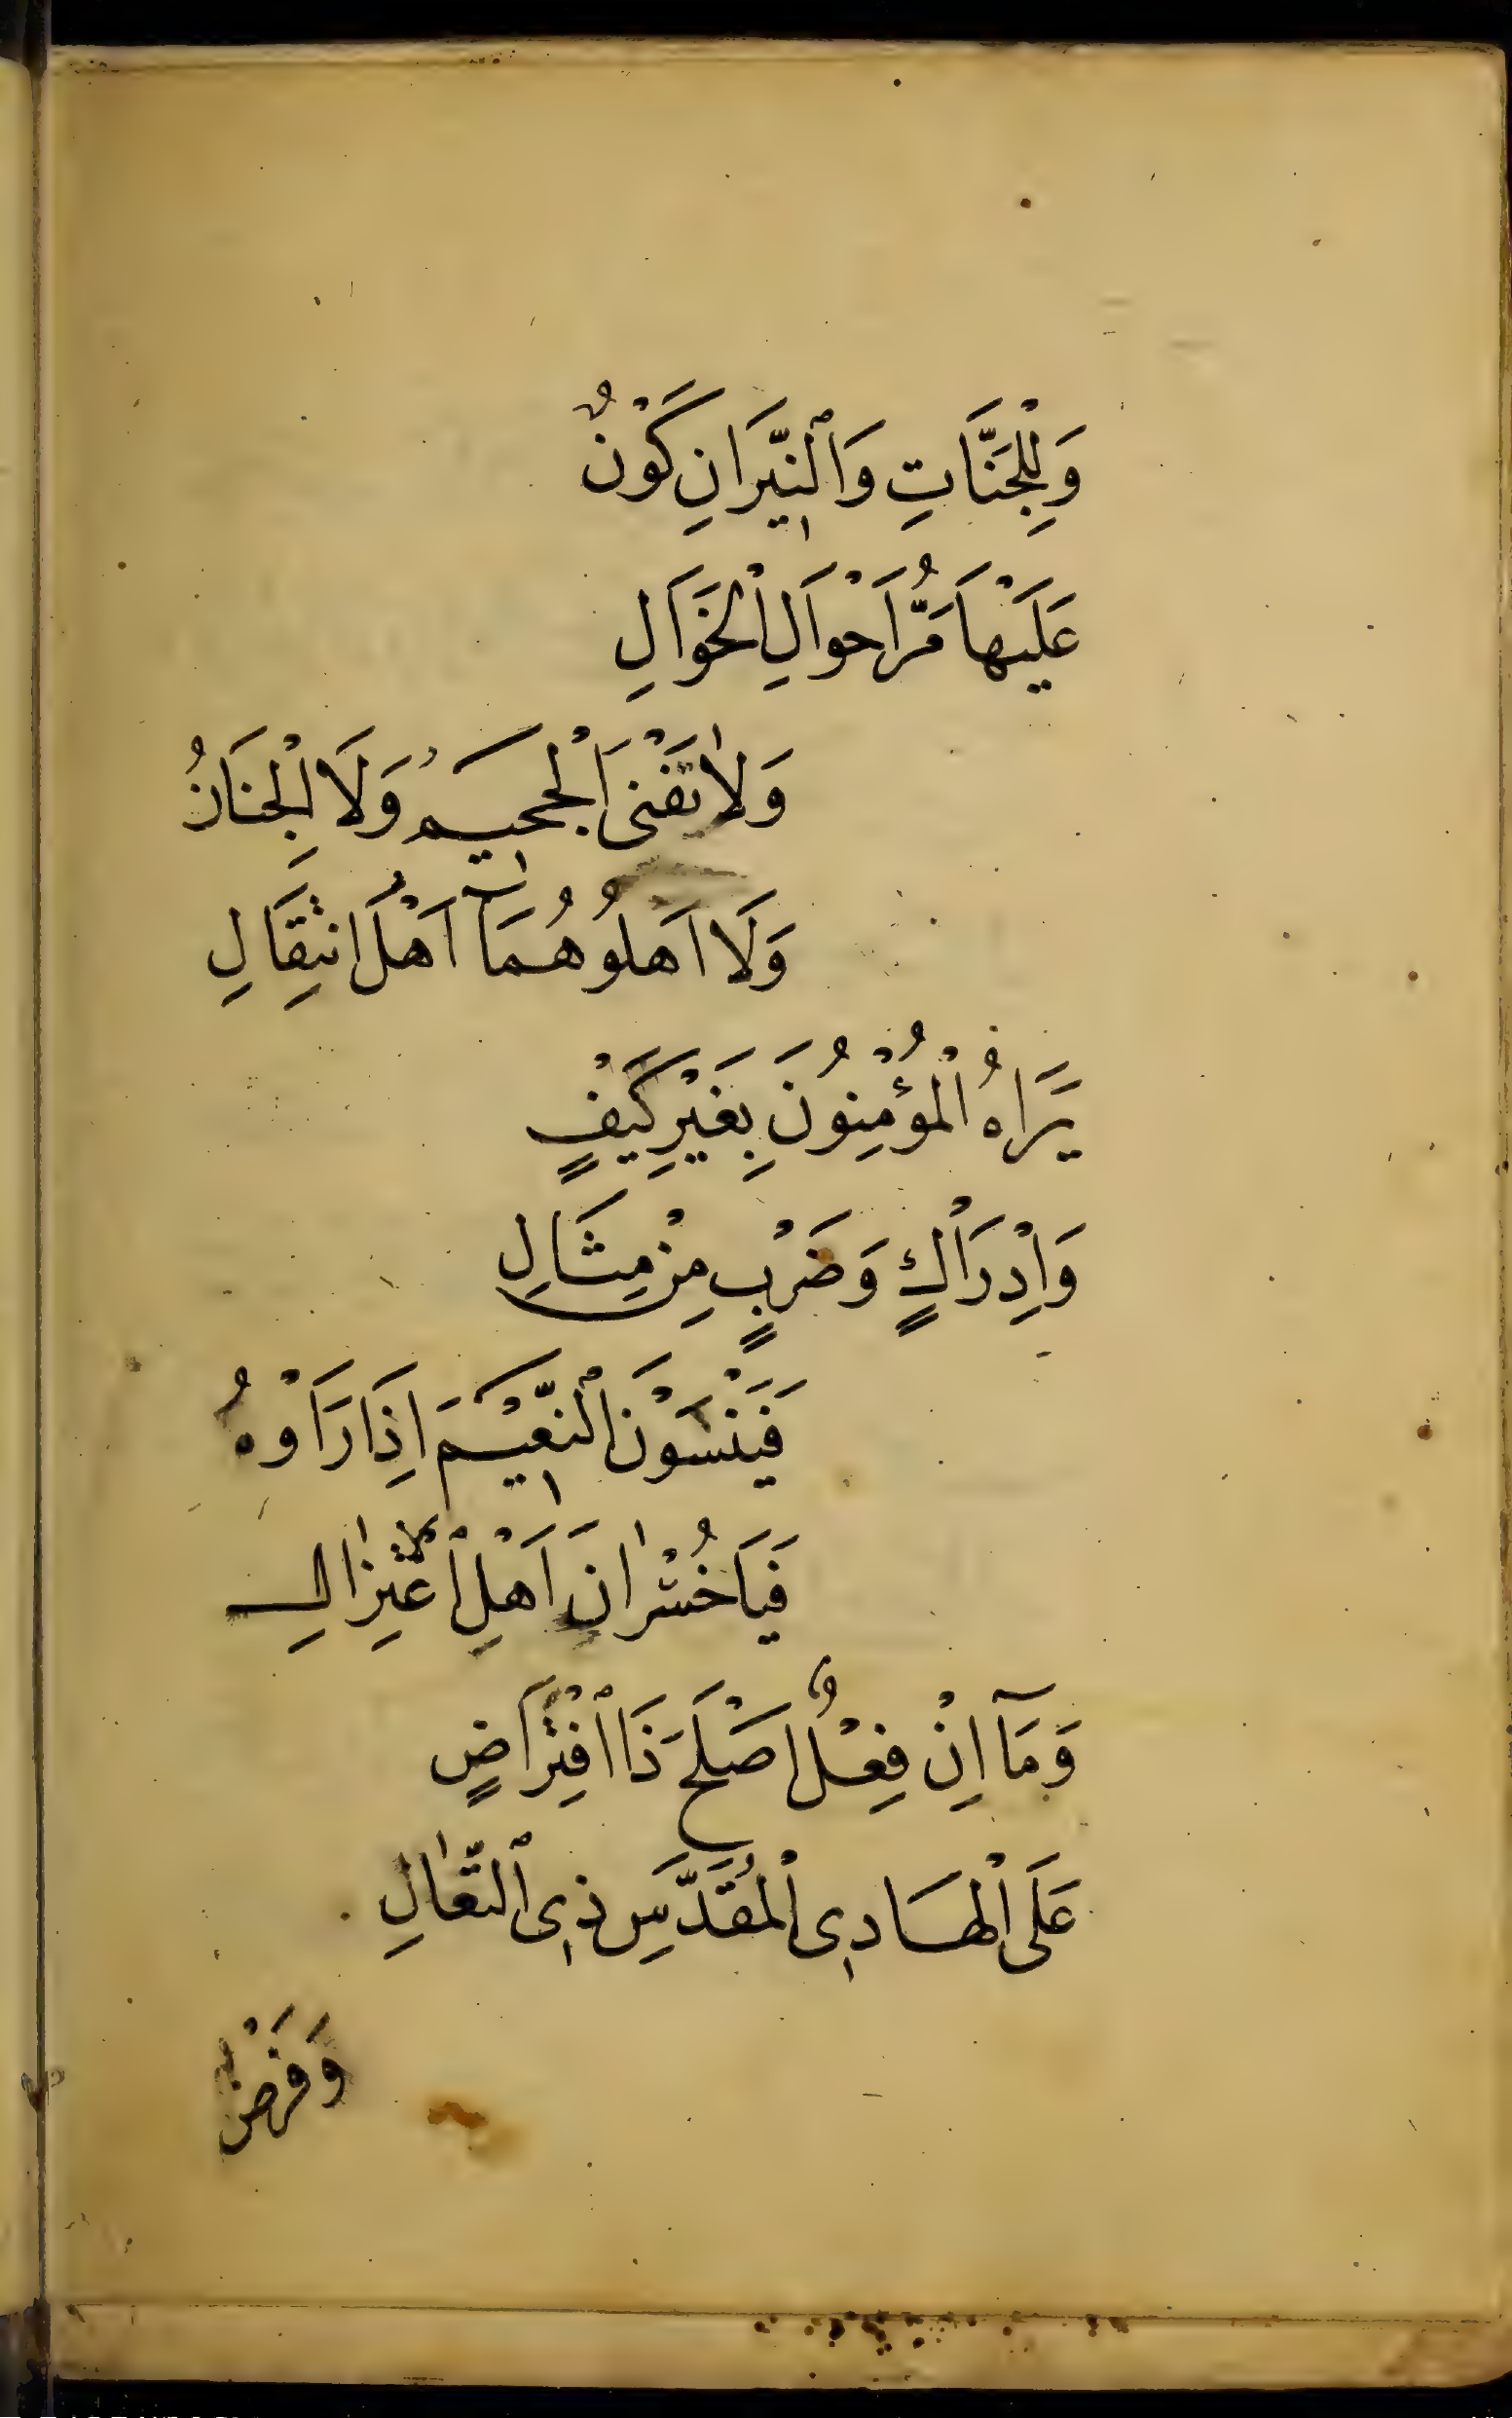 وَلِلْجَنَّاتِ وَالنِّيرَانِ كَوْنٌ
عَلَيْهَا مَرُّ اَحْوَالِ الْخَوَالِ
وَلَا تَفْنَى الْجَحِيمُ وَلَا الْجِنَانُ
وَلَا اَهْلُوهُمَا اَهْلُ انْتِقَالِ
يَرَاهُ الْمُؤْمِنُونَ بِغَيْرِ كَيْفٍ
وَاِدْرَاكٍ وَضَرْبٍ مِنْ مِثَالِ
فَيَنْسَوْنَ النَّعِيْمَ اِذَا رَاَوْهُ
فَيَا خُسْرَانَ اَهْلِ اعْتِزَالِ
وَمَآ اِنْ فِعْلٌ اَصْلَحَ ذَا افْتِرَاضٍ
عَلَى الْهَادِى الْمُقَدَّسِ ذِى التَّعَالِ
وَفَرْضٌ